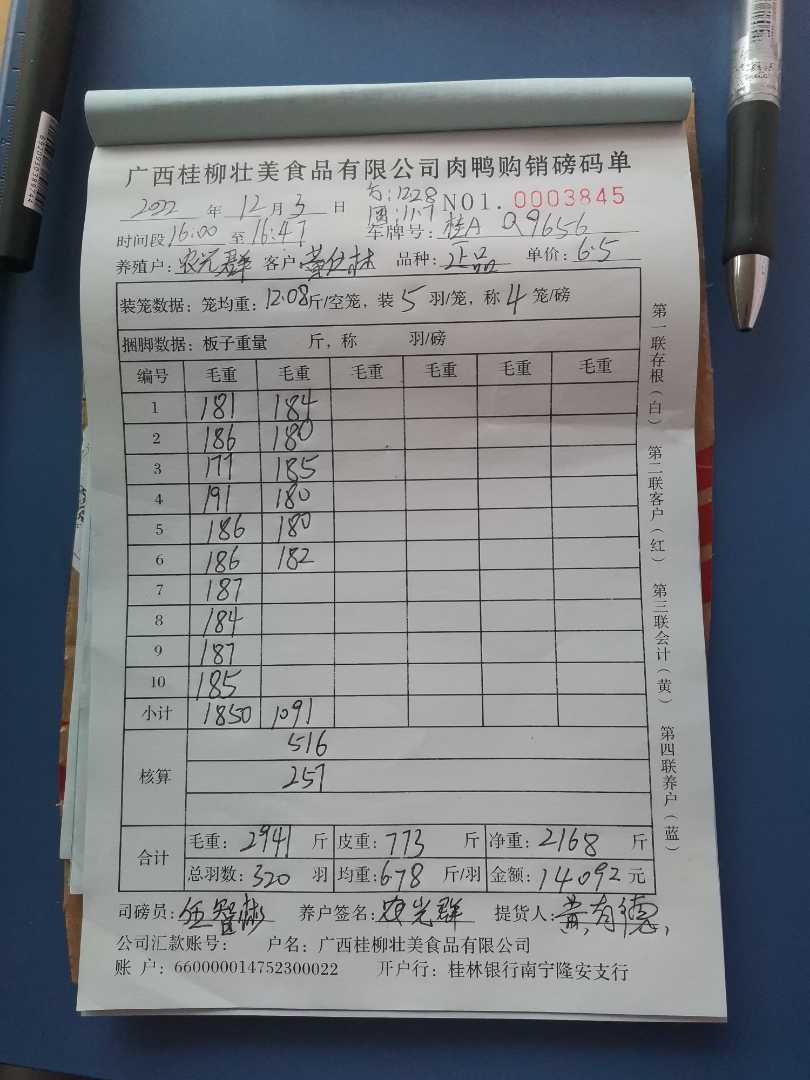 广西桂柳壮美食品有限公司肉鸭购销磅码单
2022 年 12 月 3 日 NO1. 0003845
:12.28
:11.7
时间段 16:00 至 16:47 车牌号: 桂A Q9656
养殖户: 农光群 客户: 品种: 正品 单价: 6.5
装笼数据: 笼均重: 12.08 斤/空笼, 装 5 羽/笼, 称 4 笼/磅
捆脚数据: 板子重量 斤, 称 羽/磅
编号 毛重 毛重 毛重 毛重 毛重 毛重
1 181 184
2 186 180
3 177 185
4 191 180
5 186 180
6 186 182
7 187
8 184
9 187
10 185
小计 1850 1091
核算 516
257
合计 毛重: 2941 斤 皮重: 773 斤 净重: 2168 斤
总羽数: 320 羽 均重: 678 斤/羽 金额: 14092 元
司磅员: 伍智彬 养户签名: 农光群 提货人: 黄有德
公司汇款账号: 户名: 广西桂柳壮美食品有限公司
账 户: 660000014752300022 开户行: 桂林银行南宁隆安支行
第一联存根(白) 第二联客户(红) 第三联会计(黄) 第四联养户(蓝)